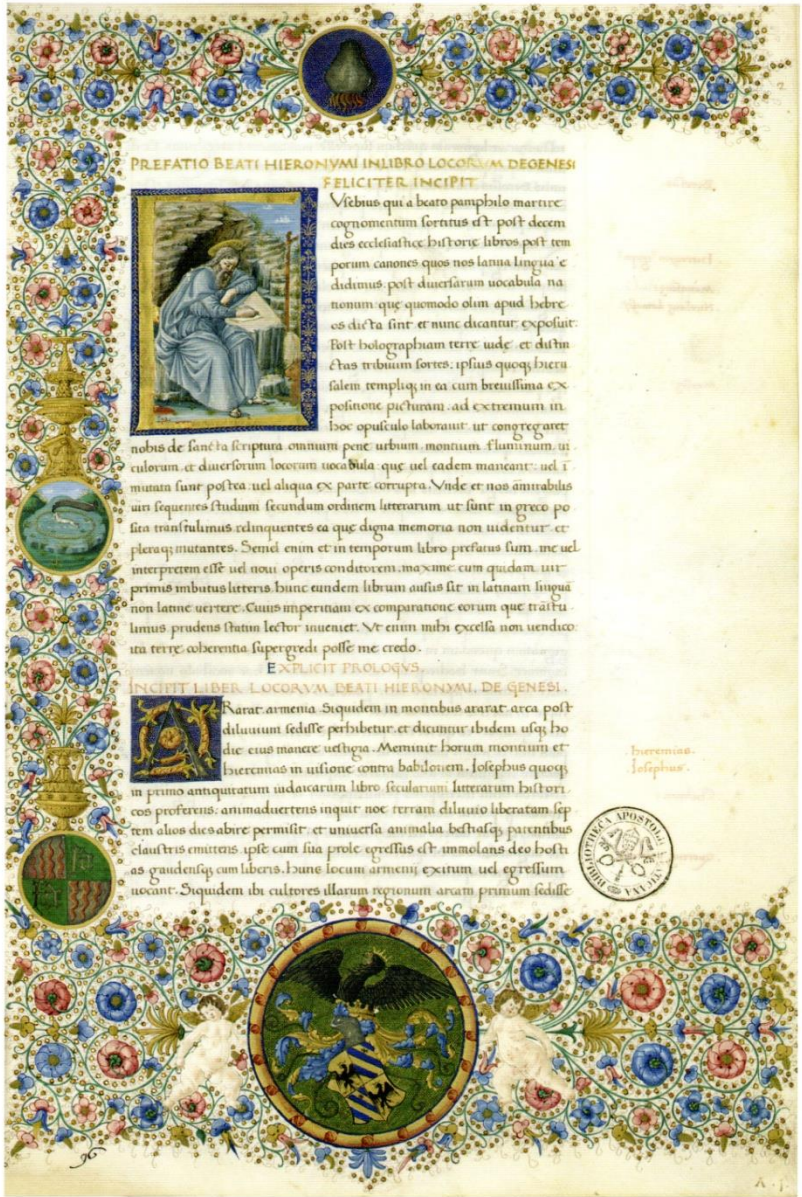 PREFATIO BEATI HIERONYMI IN LIBRO LOCORVM DE GENESI
FELICITER INCIPIT
Vsebius qui a beato pamphilo martire
cognomentum sortitus est post decem
dies ecclesiastice historie libros post tem
porum canones quos nos latina lingua e
didimus. post diuersarum uocabula na
tionum que quomodo olim apud hebre
os dicta sint et nunc dicantur exposuit.
Post holographiam terre iude et distin
ctas tribuum sortes: ipsius quoq; hieru
salem templiq; in ea cum breuissima ex
positione picturam. ad extremum in
hoc opusculo laborauit. ut congregaret
nobis de sancta scriptura omnium pene urbium. montium. fluminum. ui
culorum. et diuersorum locorum uocabula. que uel eadem maneant: uel ī
mutata sunt postea. uel aliqua ex parte corrupta. Vnde et nos āmirabilis
uiri sequentes studium secundum ordinem litterarum. ut sunt in greco po
sita transtulimus. relinquentes ea que digna memoria non uidentur. et
pleraq; mutantes. Semel enim et in temporum libro prefatus sum. me uel
interpretem esse uel noui operis conditorem. maxime cum quidam uix
primis imbutus litteris. hunc eundem librum ausus sit in latinam linguā
non latine uertere. Cuius imperitiam ex comparatione eorum que trāstu
limus prudens statim lector inueniet. Vt enim mihi excelsa non uendico
ita terre coherentia supergredi posse me credo.
EXPLICIT PROLOGVS.
INCIPIT LIBER LOCORVM BEATI HIERONYMI. DE GENESI.
ARarat. armenia. Siquidem in montibus ararat. arca post
diluuium sedisse perhibetur. et dicuntur ibidem usq; ho
die eius manere uestigia. Meminit horum montium et
hieremias in uisione contra babilonem. Iosephus quoq;
in primo antiquitatum iudaicarum libro secularium litterarum histori
cos proferens. animaduertens inquit noe terram diluuio liberatam. sep
tem alios dies abire permisit. et uniuersa animalia bestiasq; patentibus
claustris emittens. ipse cum sua prole egressus est. immolans deo hosti
as gaudensq; cum liberis. Hunc locum armenii exitum uel egressum
uocant. Siquidem ibi cultores illarum regionum arcam primum sedisse
.hieremias.
Iosephus.
BIBLIOTHECA APOSTOLICA VATICANA